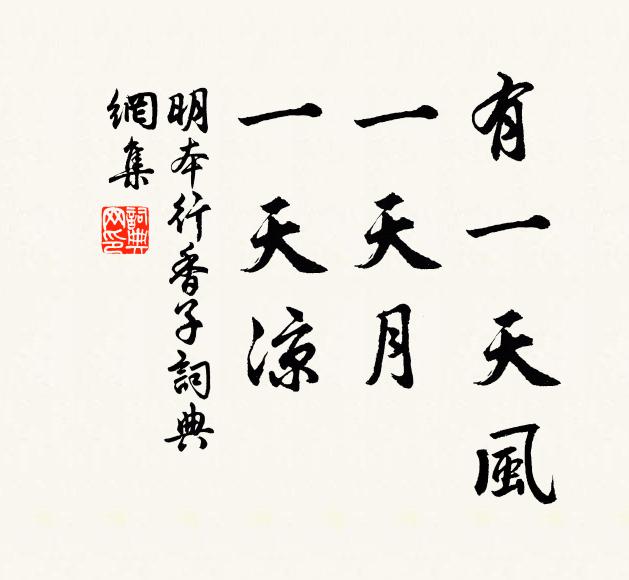 有一天風
一天月
一天涼
明本行香子詞典
網集
詞典
网印